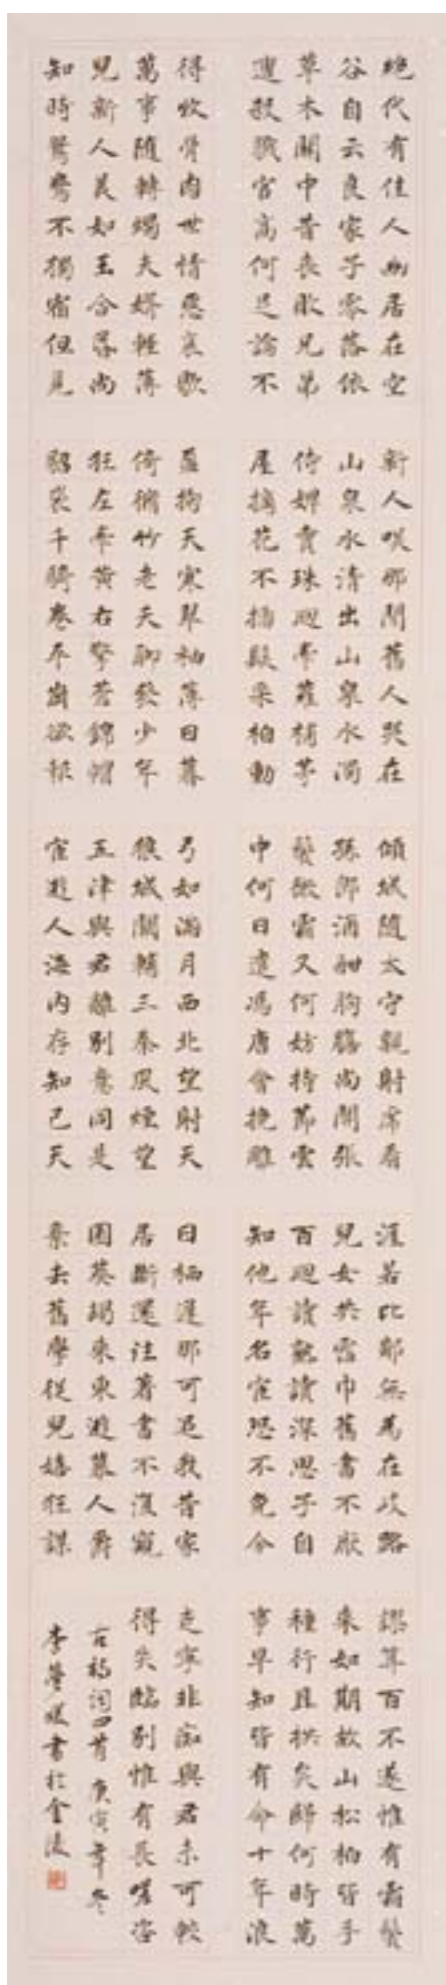 绝代有佳人幽居在空
谷自云良家子零落依
草木關中昔喪敗兄弟
遭殺戮官高何足論不
得收骨肉世情惡衰歇
萬事隨轉燭夫婿輕薄
兒新人美如玉合昏尚
知時鴛鴦不獨宿但見
新人咲那聞舊人哭在
山泉水清出山泉水濁
侍婢賣珠迴牽蘿補茅
屋摘花不插髮采柏動
盈掬天寒翠袖薄日暮
倚脩竹老夫聊發少年
狂左牽黃右擎蒼錦帽
貂裘千騎卷平崗欲報
傾城隨太守親射虎看
孫郎酒酣胸膽尚開張
鬢微霜又何妨持節雲
中何日遣馮唐會挽雕
弓如滿月西北望射天
狼城闕輔三秦風煙望
五津與君離別意同是
宦遊人海內存知己天
涯若比鄰無為在歧路
兒女共霑巾舊書不厭
百迴讀熟讀深思子自
知他年名宦恐不免今
日栖遲那可追我昔家
居斷還往著書不復窺
園葵朅來東遊慕人爵
棄去舊學從兒嬉狂謀
謬算百不遂惟有霜鬢
來如期故山松柏皆手
種行且拱矣歸何時萬
事早知皆有命十年浪
走寧非痴與君未可較
得失臨別惟有長嗟咨
古詩詞四首 庚寅年冬
李 書於金陵